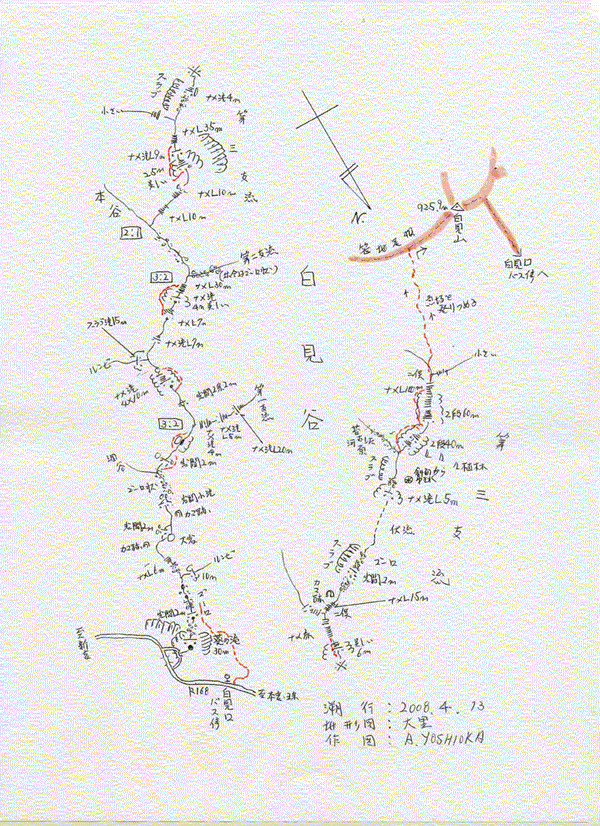 スラブ
ナメ滝4m
小さい
ナメL35m
第三支流
ナメ滝L9m
2.5m
美しい
ナメL10m
本谷
ナメL10m
2:1
第二支流
3:2
ナメL30m
ナメ滝
4m美しい
ナメL7m
スラブ滝15m
ナメ滝L7m
ルンゼ
ナメ滝
4X10m
3:2
第一支流
ナメ滝
4m
ナメ滝
L8m
ナメ滝L20m
ゴーロ状
釜間2m
大岩
ナメL6m
ルンゼ
10m
ゴーロ
葵の滝
30m
至新宮
R168
白見口
バス停
至本宮・五條
白見谷
N.
925.9m
白見山
笠塔尾根
白見口
バス停へ
尾根を
登りつめる
小さい
二俣
ナメL10m
2段60m
2段40m
植林
スラブ
ナメ滝L5m
第三支流
伏流
スラブ
ゴーロ
ナメL15m
二俣
ナメ床
美しい
6m
溯 行 : 2008.4.13
地形図 : 大里
作 図 : A.YOSHIOKA